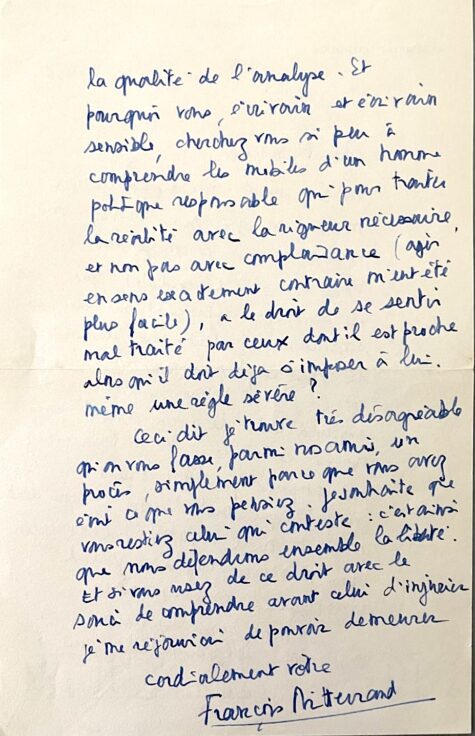 la qualité de l'analyse. Et
pourquoi vous, écrivain et écrivain
sensible, cherchez vous si peu à
comprendre les mobiles d'un homme
politique responsable qui pour traiter
la réalité avec la rigueur nécessaire,
et non pas avec complaisance (agir
en sens exactement contraire m'eut été
plus facile), a le droit de se sentir
mal traité par ceux dont il est proche
alors qu'il doit déjà s'imposer à lui-
même une règle sévère ?
Ceci dit je trouve très désagréable
qu'on vous fasse, parmi nos amis, un
procès, simplement parce que vous avez
écrit ce que vous pensiez. Je souhaite que
vous restiez celui qui conteste : c'est ainsi
que nous défendrons ensemble la liberté.
Et si vous usez de ce droit avec le
souci de comprendre avant celui d'
je me réjouirai de pouvoir demeurer
cordialement vôtre
François Mitterrand